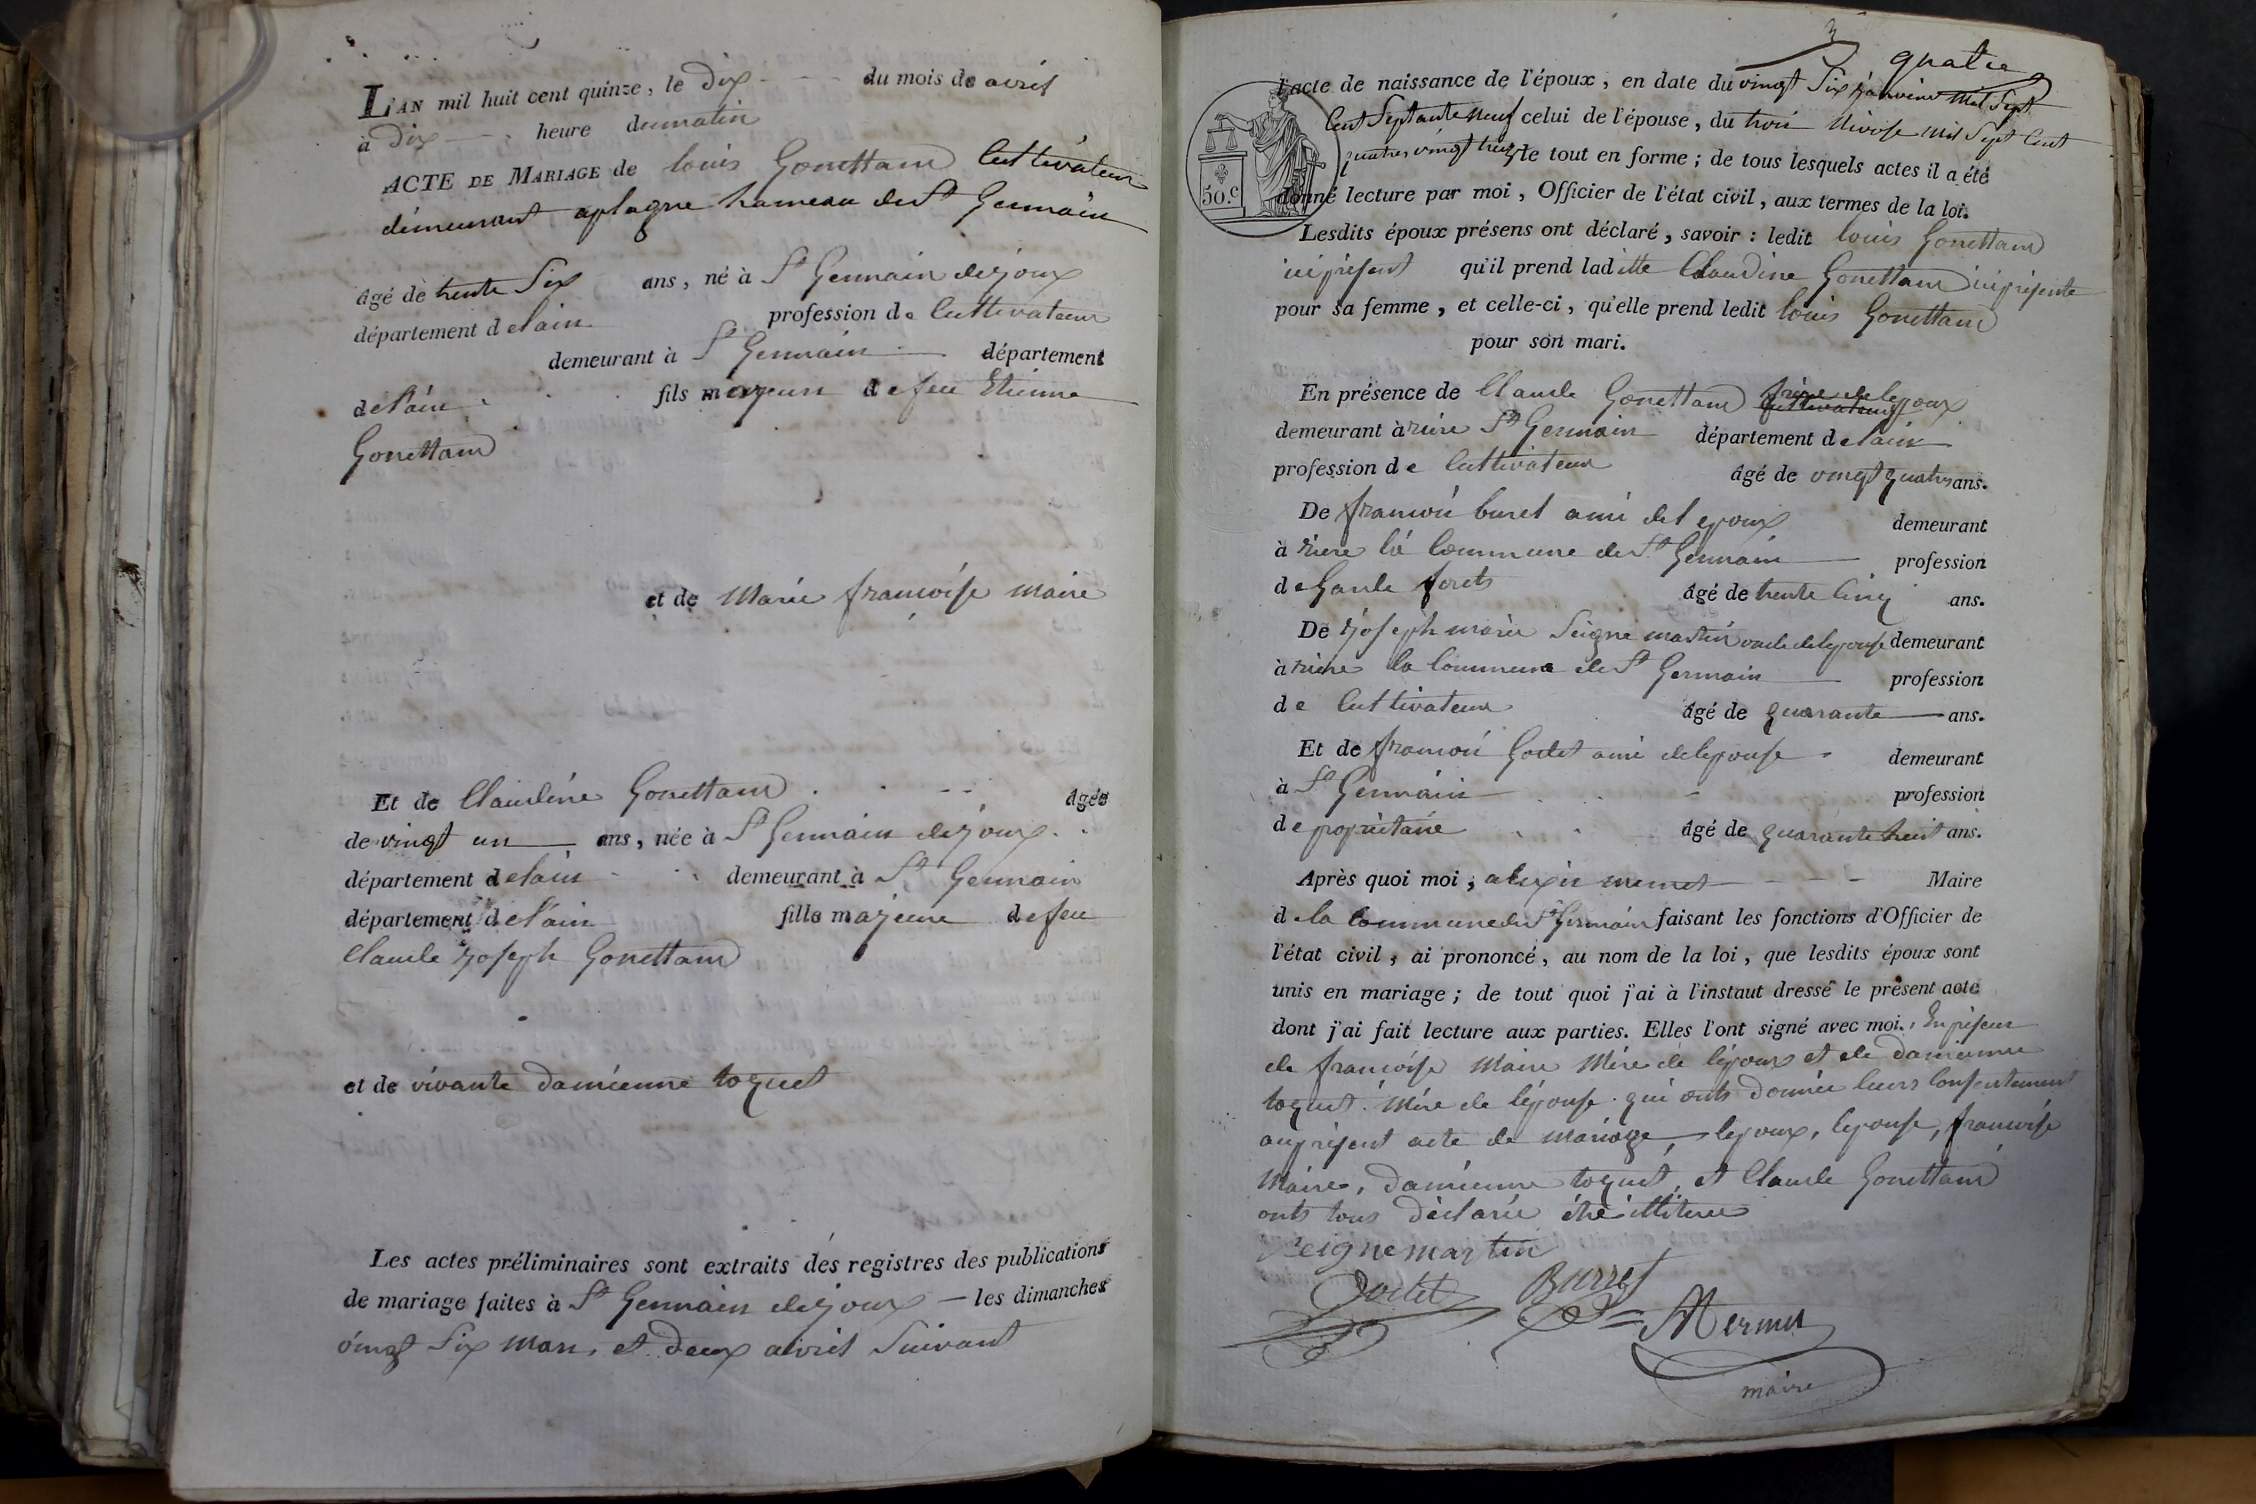 L'AN mil huit cent quinze, le Dix du mois de avril
à Dix heure du matin
ACTE DE MARIAGE de louis Gonettand Cultivateur
démeurant aplagne hameau de St Germain
âgé de trente Six ans, né à St Germain de joux
département de lain profession de Cultivateur
demeurant à St Germain département
de l'ain fils majeur de feu Etienne
Gonettand
et de Marie françoise maire
Et de Claudine Gonettand âgée
de vingt un ans, née à St Germain de joux
département de lain demeurant à St Germain
département de l'ain fille majeure de feu
Claude joseph Gonettand
et de vivante Damienne toquet
Les actes préliminaires sont extraits des registres des publications
de mariage faites à St Germain de joux — les dimanches
vingt Six mars, et deux avril Suivant
3
quatre
l'acte de naissance de l'époux, en date du vingt Six janvier mil Sept
Cent Septante neuf celui de l'épouse, du trois Nivose mil Sept Cent
quatre vingt treize le tout en forme; de tous lesquels actes il a été
50.c
donné lecture par moi, Officier de l'état civil, aux termes de la loi.
Lesdits époux présens ont déclaré, savoir: ledit louis Gonettand
ici présent qu'il prend laditte Claudine Gonettand ici présente
pour sa femme, et celle-ci, qu'elle prend ledit louis Gonettand
pour son mari.
En présence de Claude Gonettand frère de lepoux
demeurant à riere St Germain département de lain
profession de Cultivateur âgé de vingt quatre ans.
De francoi buret ami de l epoux demeurant
à riere la Commune de St Germain profession
de Garde forets âgé de trente Cinq ans.
De joseph marie Seigne martin oncle de lepouse demeurant
à riere la Commune de St Germain profession
de Cultivateur âgé de quarante ans.
Et de francoi Godet ami de lepouse demeurant
à St Germain profession
de propriétaire âgé de quarante huit ans.
Après quoi moi, alexis mermet Maire
de la Commune de St Germain faisant les fonctions d'Officier de
l'état civil, ai prononcé, au nom de la loi, que lesdits époux sont
unis en mariage; de tout quoi j'ai à l'instaut dressé le présent acte
dont j'ai fait lecture aux parties. Elles l'ont signé avec moi. En présence
de françoise Maire Mère de lépoux et de damienne
toquet. Mére de lépouse qui onts Donnée leurs Consentement
au présent acte de mariage, lepoux, lepouse, francoise
Maire, Damienne toquet, et Claude Gonettand
onts tous Déclarée étre illiteree
Seignemartin
Godet Burret
Mermet
maire